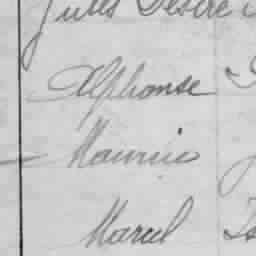 Jules Désiré
Alphonse
Maurice
Marcel